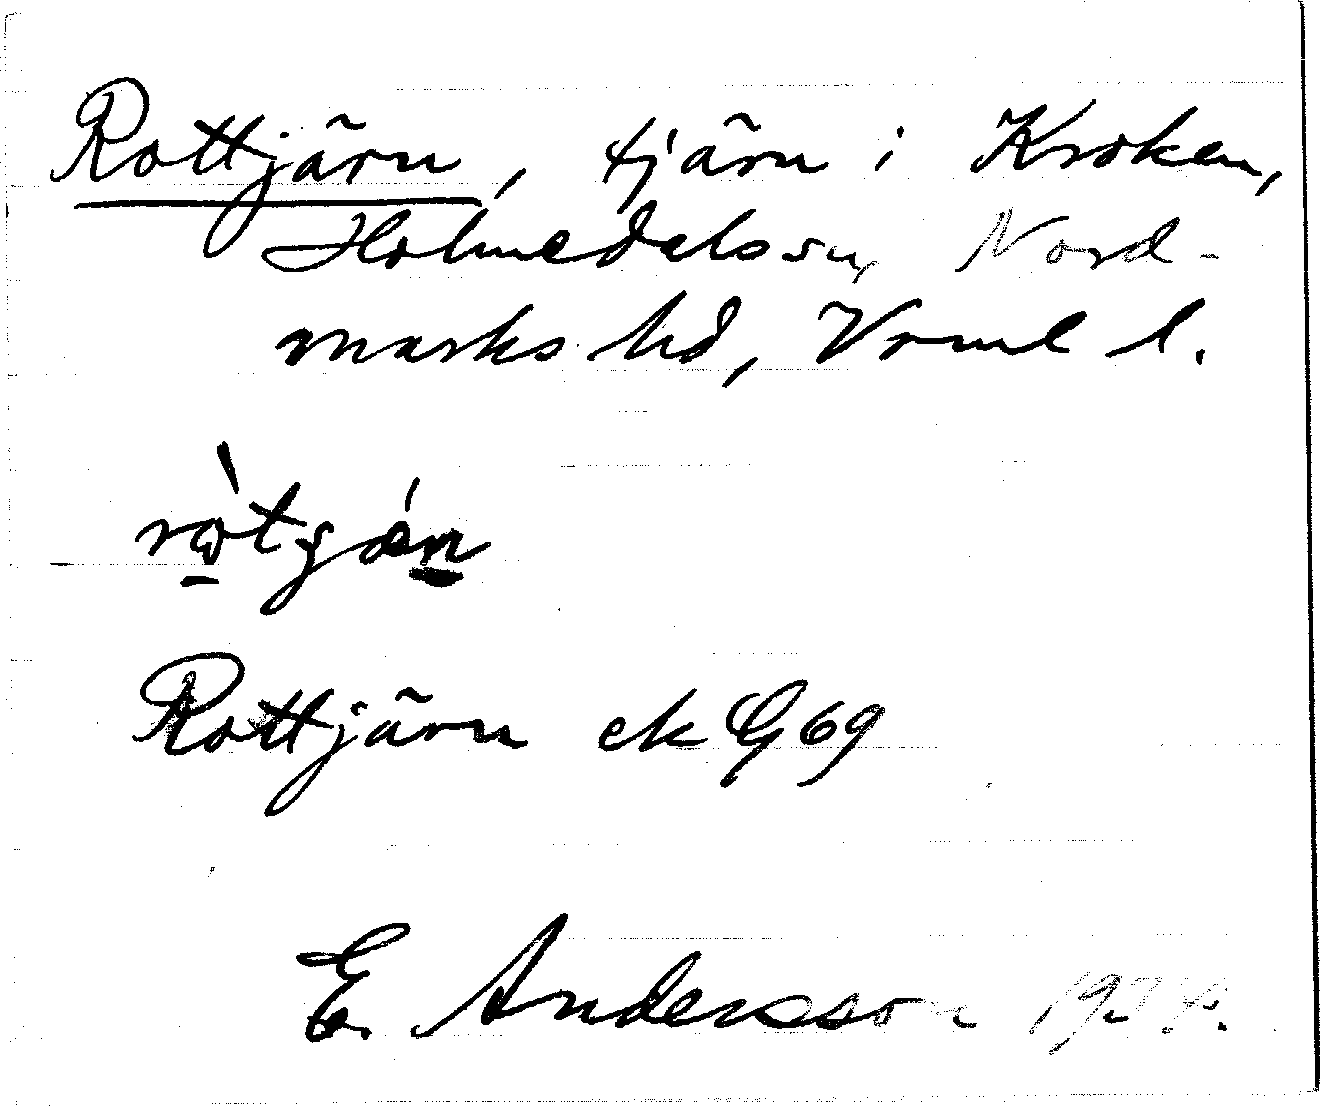 Rottjärn, tjärn i Kroken,
Holmedals sn, Nord-
marks hd, Vrml l.
Rottjärn ek G 69
E. Andersson